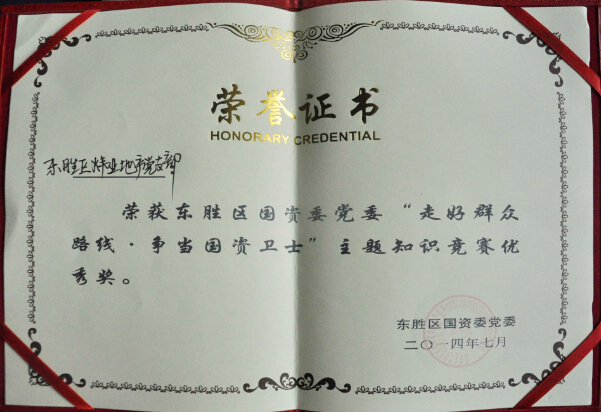 荣誉证书
HONORARY CREDENTIAL
东胜区炜业地产党支部
荣获东胜区国资委党委“走好群众
路线·争当国资卫士”主题知识竞赛优
秀奖。
东胜区国资委党委
二〇一四年七月